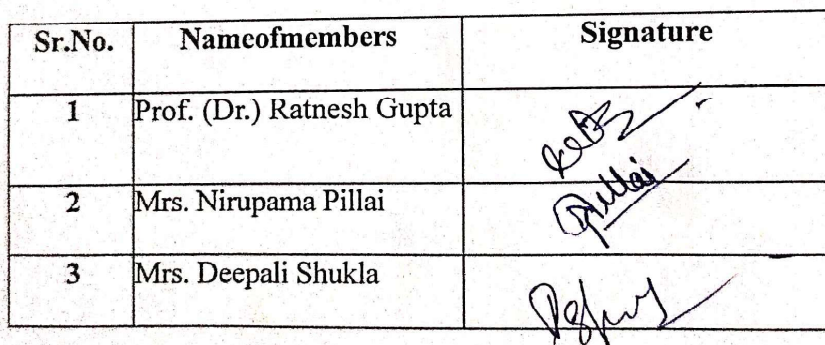 Sr.No. Nameofmembers Signature
1 Prof. (Dr.) Ratnesh Gupta
2 Mrs. Nirupama Pillai Pillai
3 Mrs. Deepali Shukla